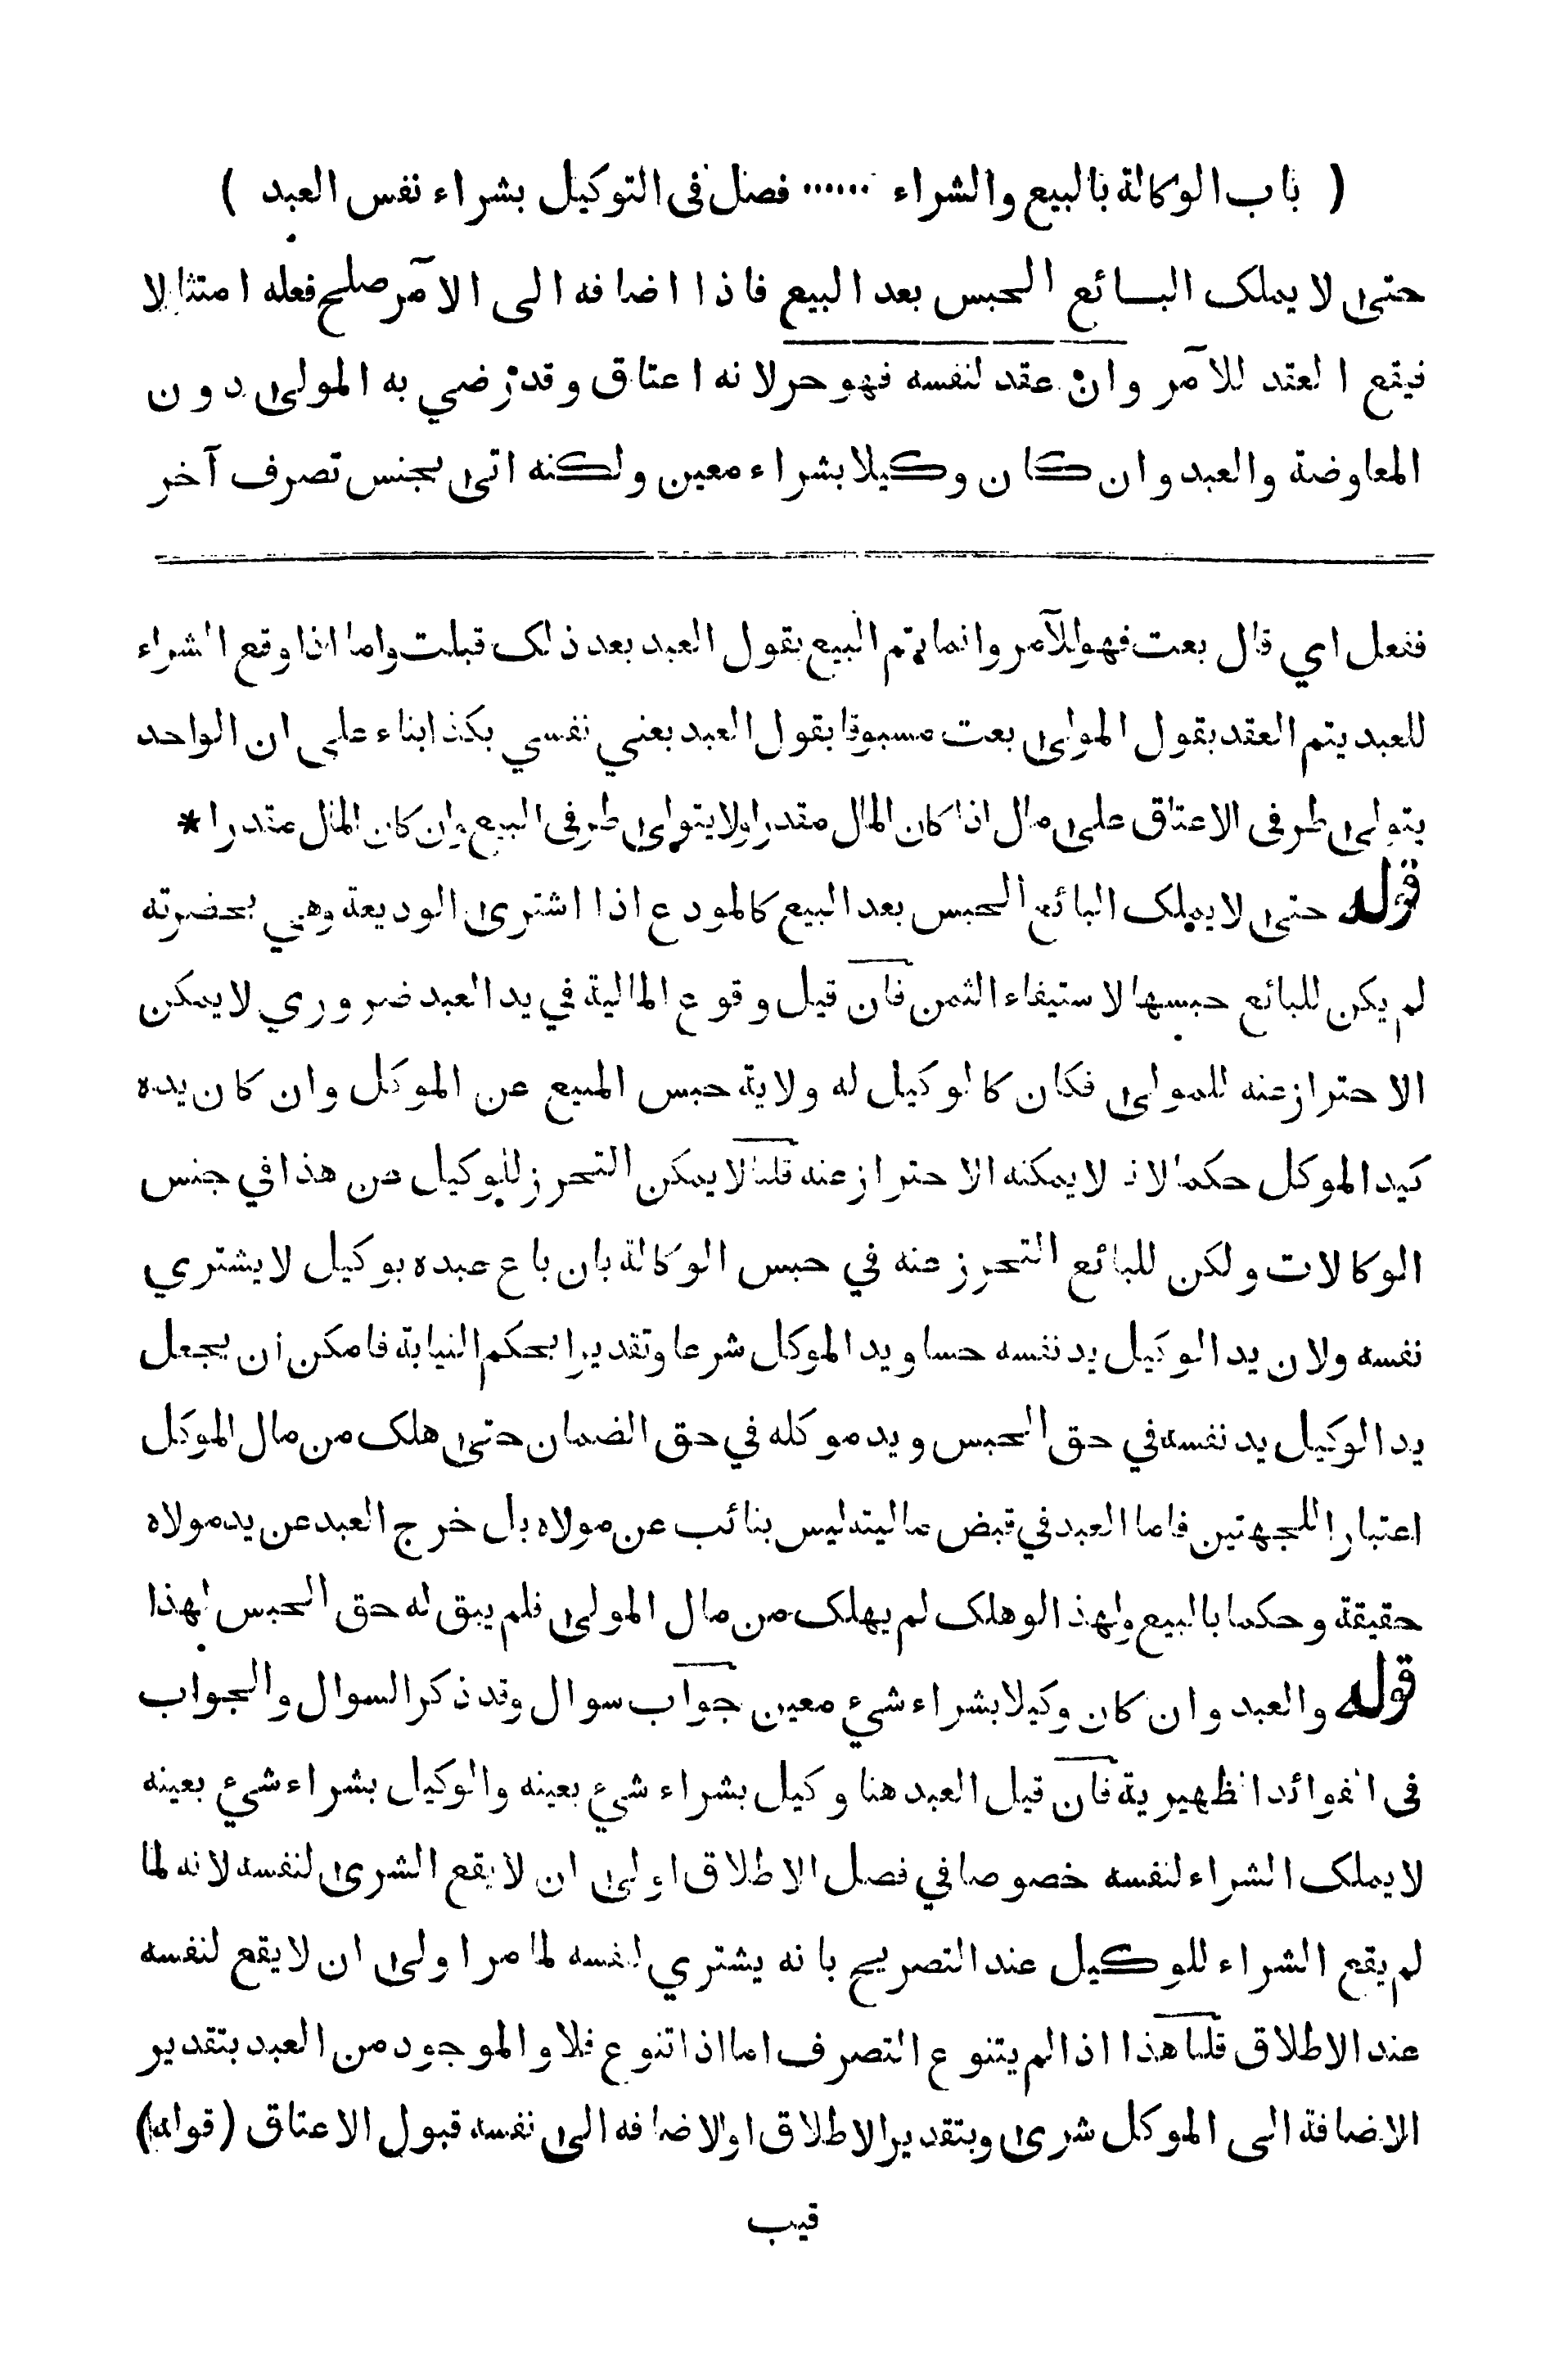 ( باب الوكالة بالبيع والشراء ...... فصل فى التوكيل بشراء نفس العبد )
حتى لا يملك البائع الحبس بعد البيع فاذا اضافه الى الآمر صلح فعله امتثالا
فيقع العقد للآمر وان عقد لنفسه فهو حر لانه اعتاق وقد رضي به المولى دون
المعاوضة والعبد وان كان وكيلا بشراء معين ولكنه اتى بجنس تصرف آخر
ففعل اي قال بعت فهو للآمر وانما يتم البيع بقول العبد بعد ذلك قبلت واما اذا وقع الشراء
للعبد يتم العقد بقول المولى بعت مسبوقا بقول العبد بعني نفسي بكذا بناء على ان الواحد
يتولى طرفى الاعتاق على مال اذا كان المال مقدرا ولا يتولى طرفى البيع وان كان المال مقدرا *
قوله حتى لا يملك البائع الحبس بعد البيع كالمودع اذا اشترى الوديعة وهي بحضرته
لم يكن للبائع حبسها لاستيفاء الثمن فان قيل وقوع المالية في يد العبد ضروري لا يمكن
الاحتراز عنه للمولى فكان كالوكيل له ولاية حبس المبيع عن الموكل وان كان يده
كيد الموكل حكما لانه لا يمكنه الاحتراز عنه قلنا لا يمكن التحرز للوكيل عن هذا في جنس
الوكالات ولكن للبائع التحرز عنه في حبس الوكالة بان باع عبده بوكيل لا يشتري
نفسه ولان يد الوكيل يد نفسه حسا ويد الموكل شرعا وتقديرا بحكم النيابة فامكن ان يجعل
يد الوكيل يد نفسه في حق الحبس ويد موكله في حق الضمان حتى هلك من مال الموكل
اعتبارا للجهتين فاما العبد في قبض ماليته ليس بنائب عن مولاه بل خرج العبد عن يد مولاه
حقيقة وحكما بالبيع ولهذا لو هلك لم يهلك من مال المولى فلم يبق له حق الحبس لهذا
قوله والعبد وان كان وكيلا بشراء شيء معين جواب سوال وقد ذكر السوال والجواب
فى الفوائد الظهيرية فان قيل العبد هنا وكيل بشراء شيء بعينه والوكيل بشراء شيء بعينه
لا يملك الشراء لنفسه خصوصا في فصل الاطلاق اولى ان لا يقع الشرى لنفسه لانه لما
لم يقع الشراء للوكيل عند التصريح بانه يشتري لنفسه لما مر اولى ان لا يقع لنفسه
عند الاطلاق قلنا هذا اذا لم يتنوع التصرف اما اذا تنوع فلا والموجود من العبد بتقدير
الاضافة الى الموكل شرى وبتقدير الاطلاق او الاضافه الى نفسه قبول الاعتاق (قوله)